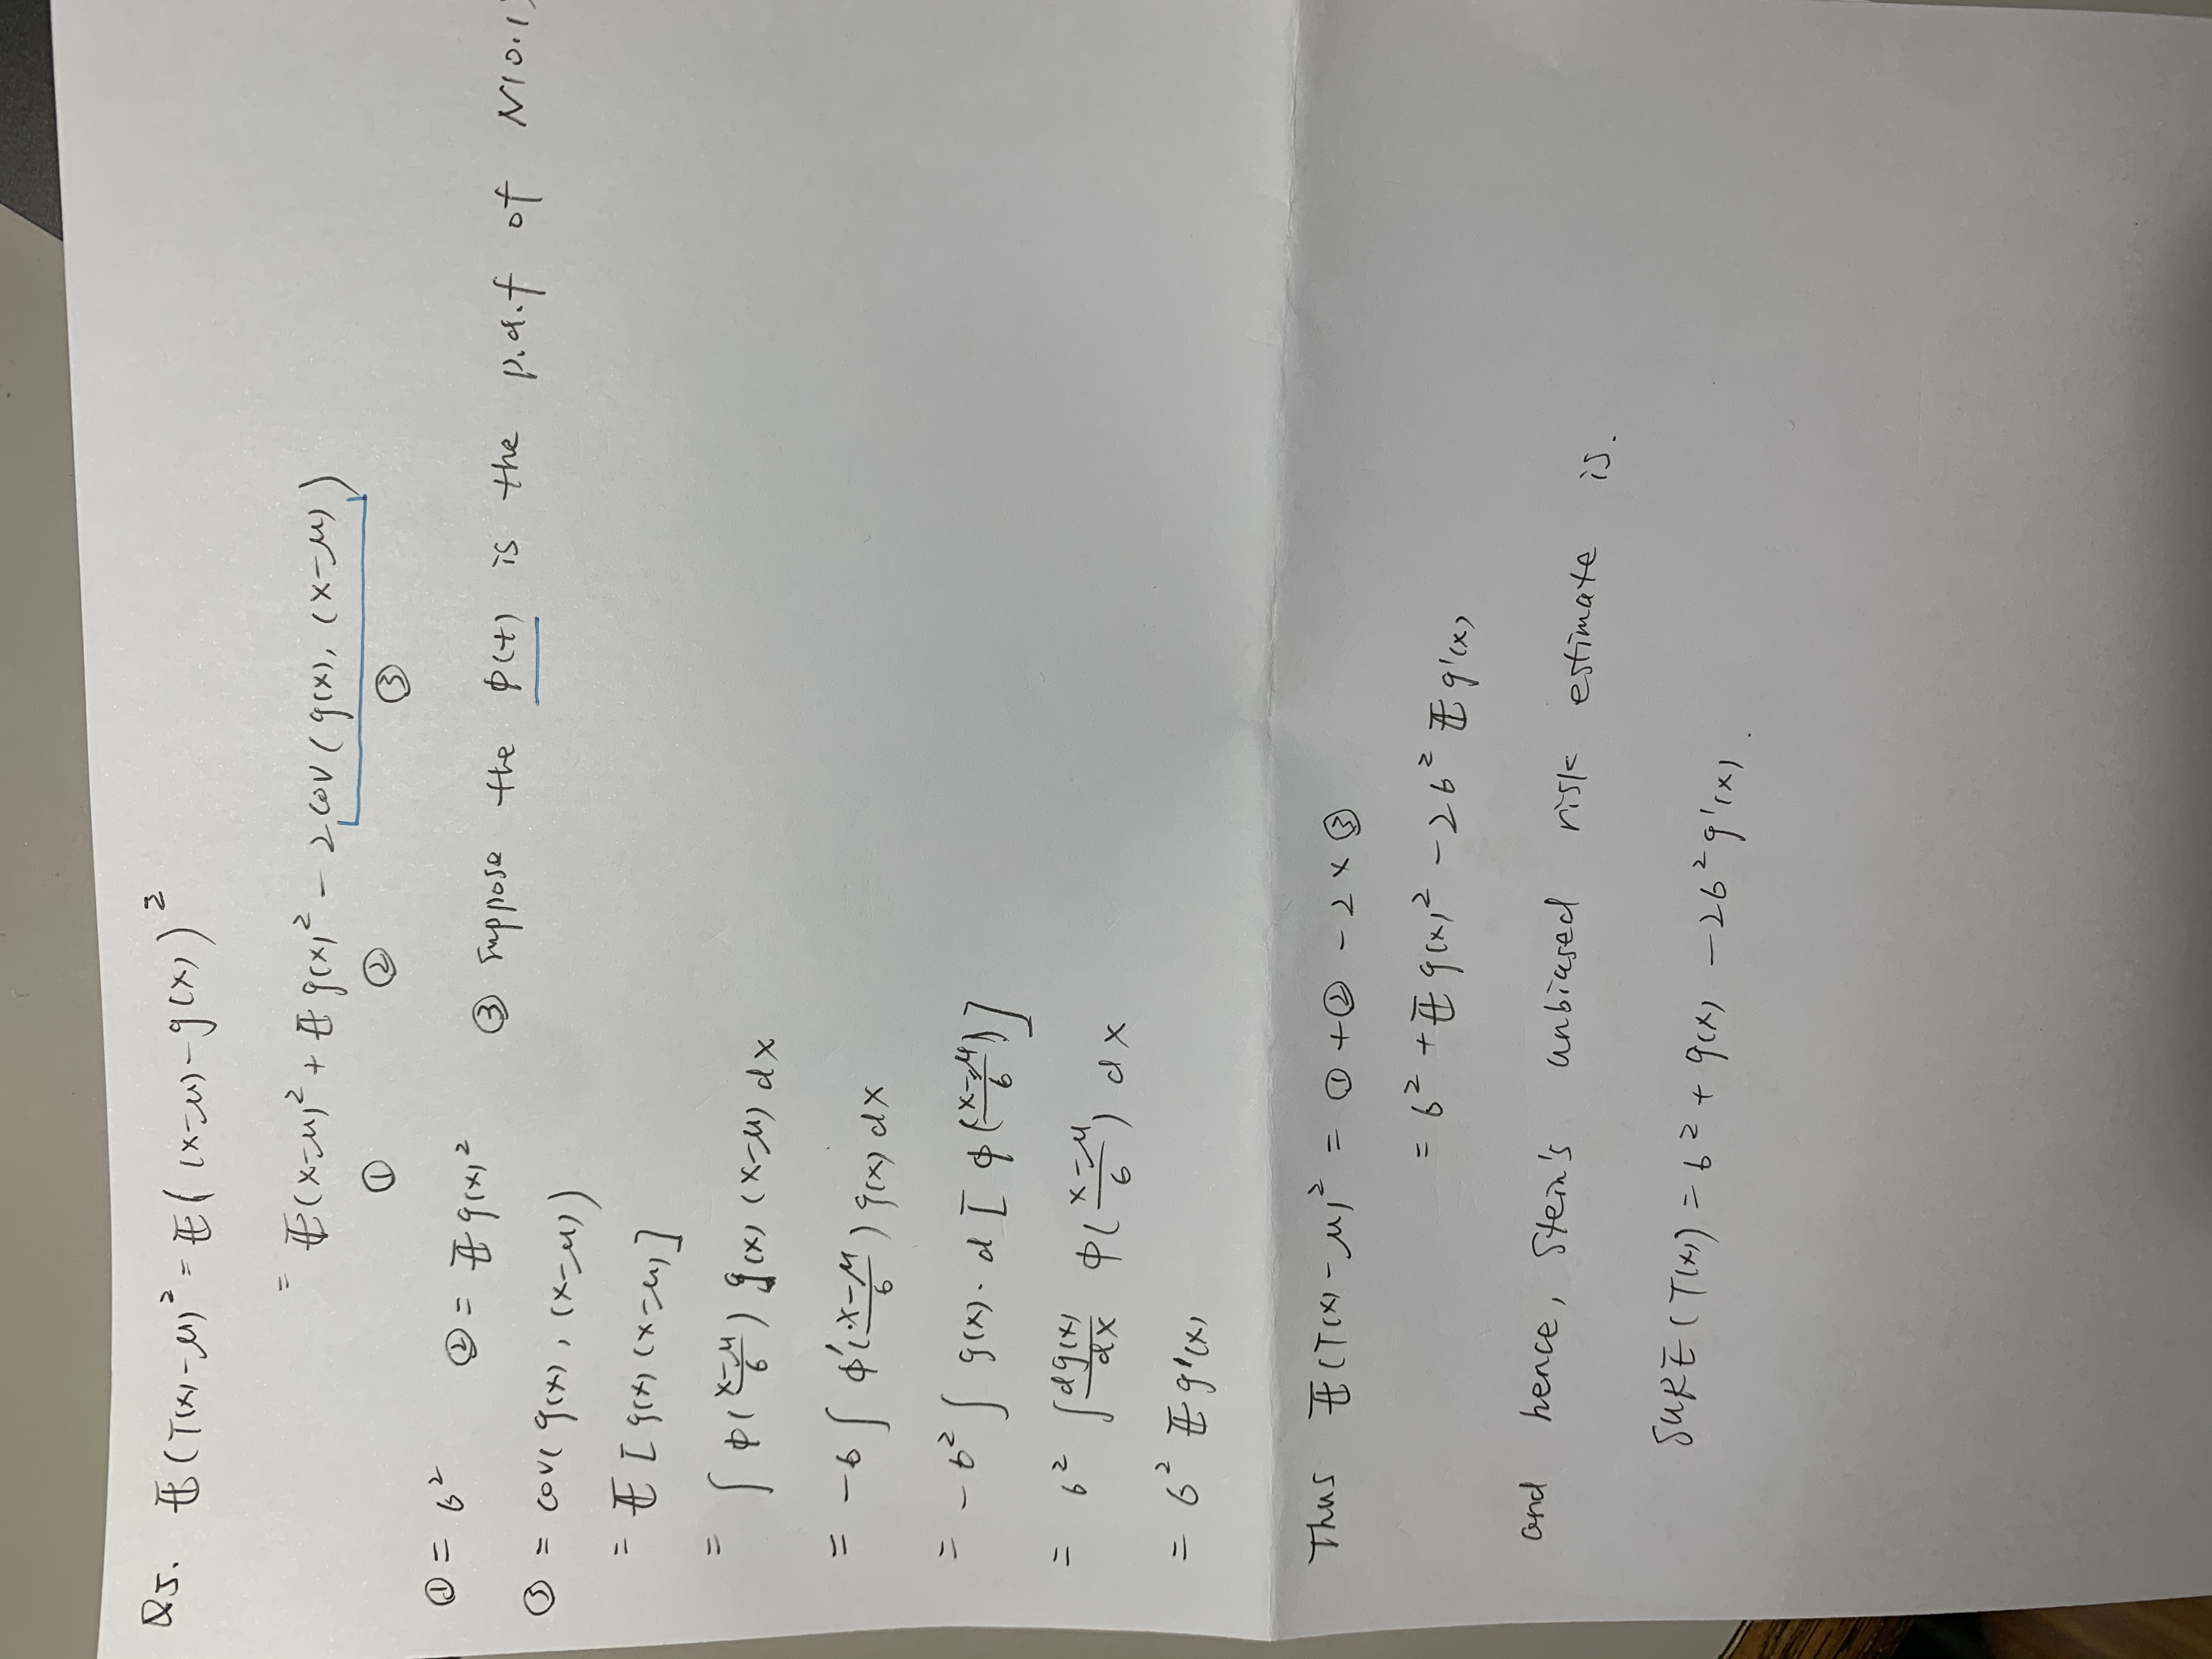 Q5. E(T(x)-μ)² = E((x-μ)-g(x))²
= E(x-μ)² + E g(x)² - 2cov(g(x), (x-μ))
① ② ③
① = σ² ② = E g(x)² ③ suppose the φ(t) is the p.d.f of N(0,1)
③ = cov(g(x), (x-μ))
= E[g(x)(x-μ)]
= ∫ φ((x-μ)/σ) g(x) (x-μ) dx
= -σ ∫ φ'((x-μ)/σ) g(x) dx
= -σ² ∫ g(x)·d[φ((x-μ)/σ)]
= σ² ∫ dg(x)/dx φ((x-μ)/σ) dx
= σ² E g'(x)
Thus E(T(x)-μ)² = ① + ② - 2×③
= σ² + E g(x)² - 2σ² E g'(x)
and hence, Stein's unbiased risk estimate is.
SURE(T(x)) = σ² + g(x) - 2σ² g'(x).